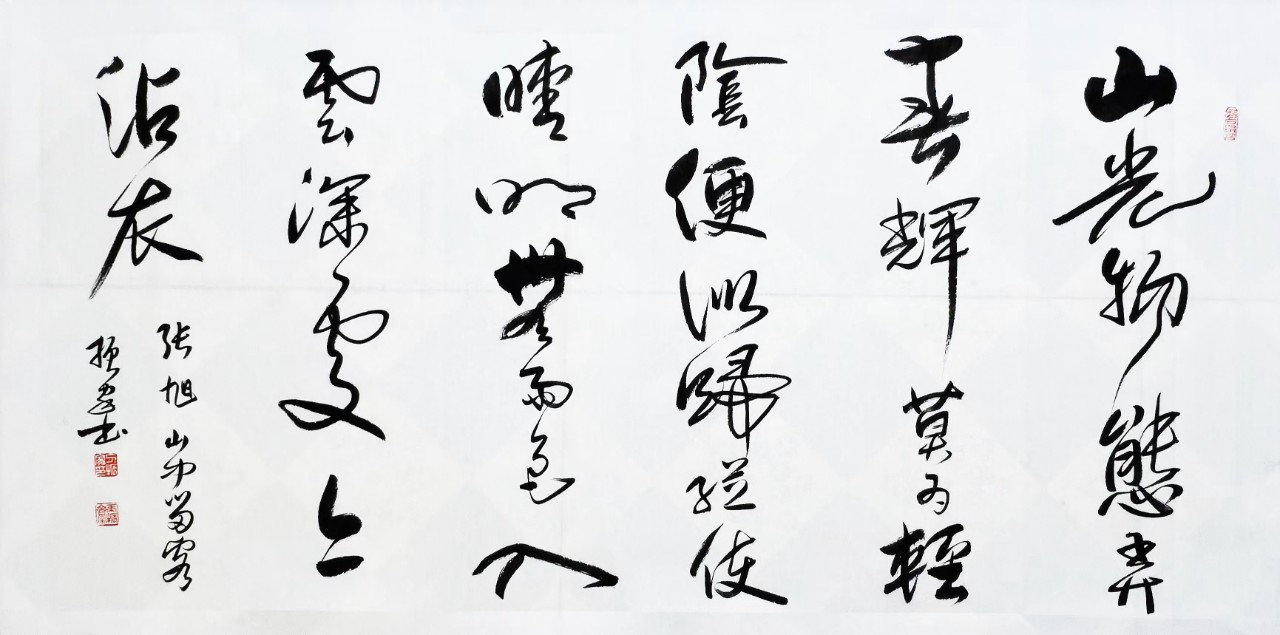 山光物態弄
春輝莫為輕
陰便拟歸縱使
晴明無雨色入
雲深處亦
沾衣
張旭山中留客
振書